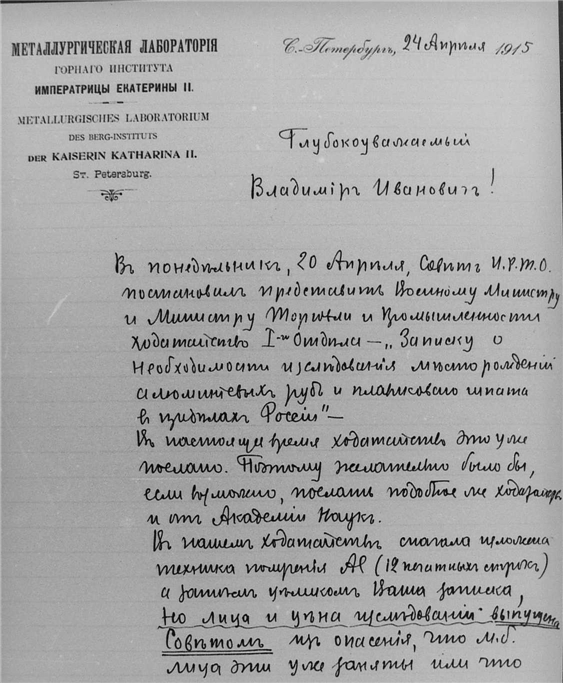 МЕТАЛЛУРГИЧЕСКАЯ ЛАБОРАТОРІЯ
ГОРНАГО ИНСТИТУТА
ИМПЕРАТРИЦЫ ЕКАТЕРИНЫ II.
METALLURGISCHES LABORATORIUM
DES BERG-INSTITUTS
DER KAISERIN KATHARINA II.
St. Petersburg.
С.-Петербургъ, 24 Апрѣля 1915
Глубокоуважаемый
Владиміръ Ивановичъ!
Въ понедѣльникъ, 20 Апрѣля, Совѣтъ И.Р.Т.О.
постановилъ представить Военному Министру
и Министру Торговли и Промышленности
ходатайство I-го Отдѣла — „Записку о
необходимости изслѣдованія мѣсторожденій
алюминіевыхъ рудъ и плавиковаго шпата
въ предѣлахъ Россіи" —
Въ настоящее время ходатайство это уже
послано. Поэтому желательно было бы,
если возможно, послать подобное же ходатайство
и отъ Академіи Наукъ.
Въ нашемъ ходатайствѣ сначала изложена
техника полученія Al (12 печатныхъ строкъ)
а затѣмъ цѣликомъ Ваша записка,
но лица и цѣна изслѣдованій выпущена
Совѣтомъ изъ опасенія, что м.б.
лица эти уже заняты или что